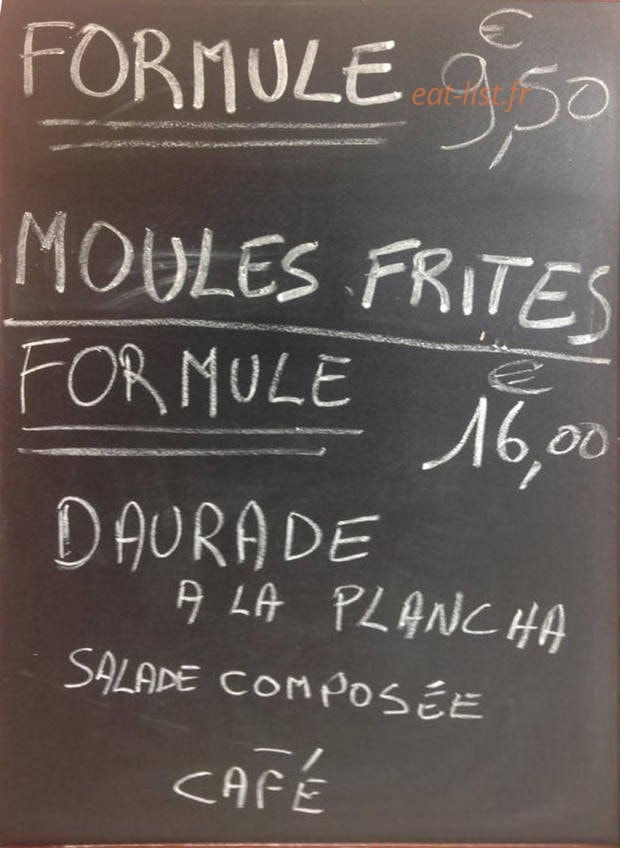 FORMULE € 9,50
eat-list.fr
MOULES FRITES
FORMULE € 16,00
DAURADE
A LA PLANCHA
SALADE COMPOSÉE
CAFÉ